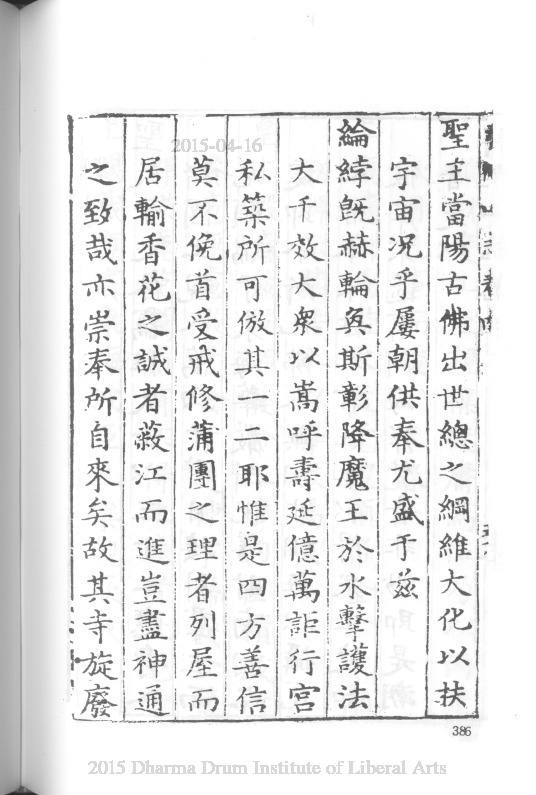 聖主當陽古佛出世總之綱維大化以扶
宇宙况乎屢朝供奉尤盛于兹
綸綍旣赫輪奐斯彰降魔王於水擊護法
大千效大衆以嵩呼壽延億萬詎行宫
私築所可倣其一二耶惟是四方善信
莫不俛首受戒修蒲團之理者列屋而
居輸香花之誠者蔽江而進豈盡神通
之致哉亦崇奉所自來矣故其寺旋廢
386
2015-04-16
2015 Dharma Drum Institute of Liberal Arts